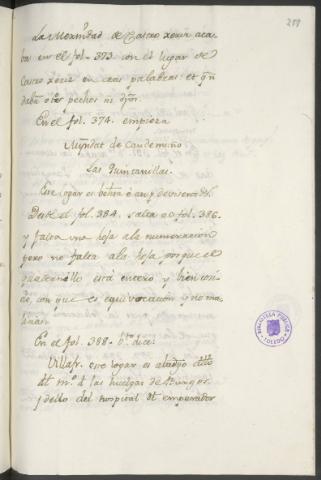 289
La Merindad de Castro xeriz aca-
ba en el fol. 373 con el lugar de
Castro xeriz en estas palabras: et qn
daban otro pechos ni dros.
En el fol. 374. empieza
Myndat de Candemuño
Las Quintanillas.
Este logar es behtria
Desde el fol. 384. salta al fol. 386.
y falta una hoja a la numeracion
pero no falta a la hoja porque el
quadernillo está entero, y bien cosi-
do, con que es equivocacion y no ma-
licia.
En el fol. 388. bto. dice:
Villafr. este logar es abadgo
del mo. d las huelgas de Burgos
y dello del hospital del emperador
BIBLIOTECA PUBLICA
TOLEDO